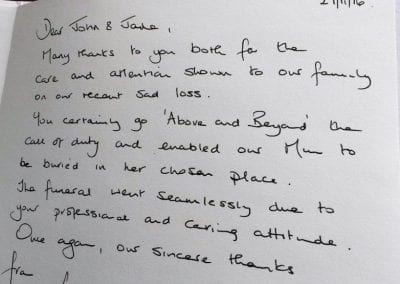 21/11/16
Dear John & Jane,
Many thanks to you both for the
care and attention shown to our family
on our recent sad loss.
You certainly go 'Above and Beyond' the
call of duty and enabled our Mum to
be buried in her chosen place.
The funeral went seamlessly due to
your professional and caring attitude.
Once again, our sincere thanks
from